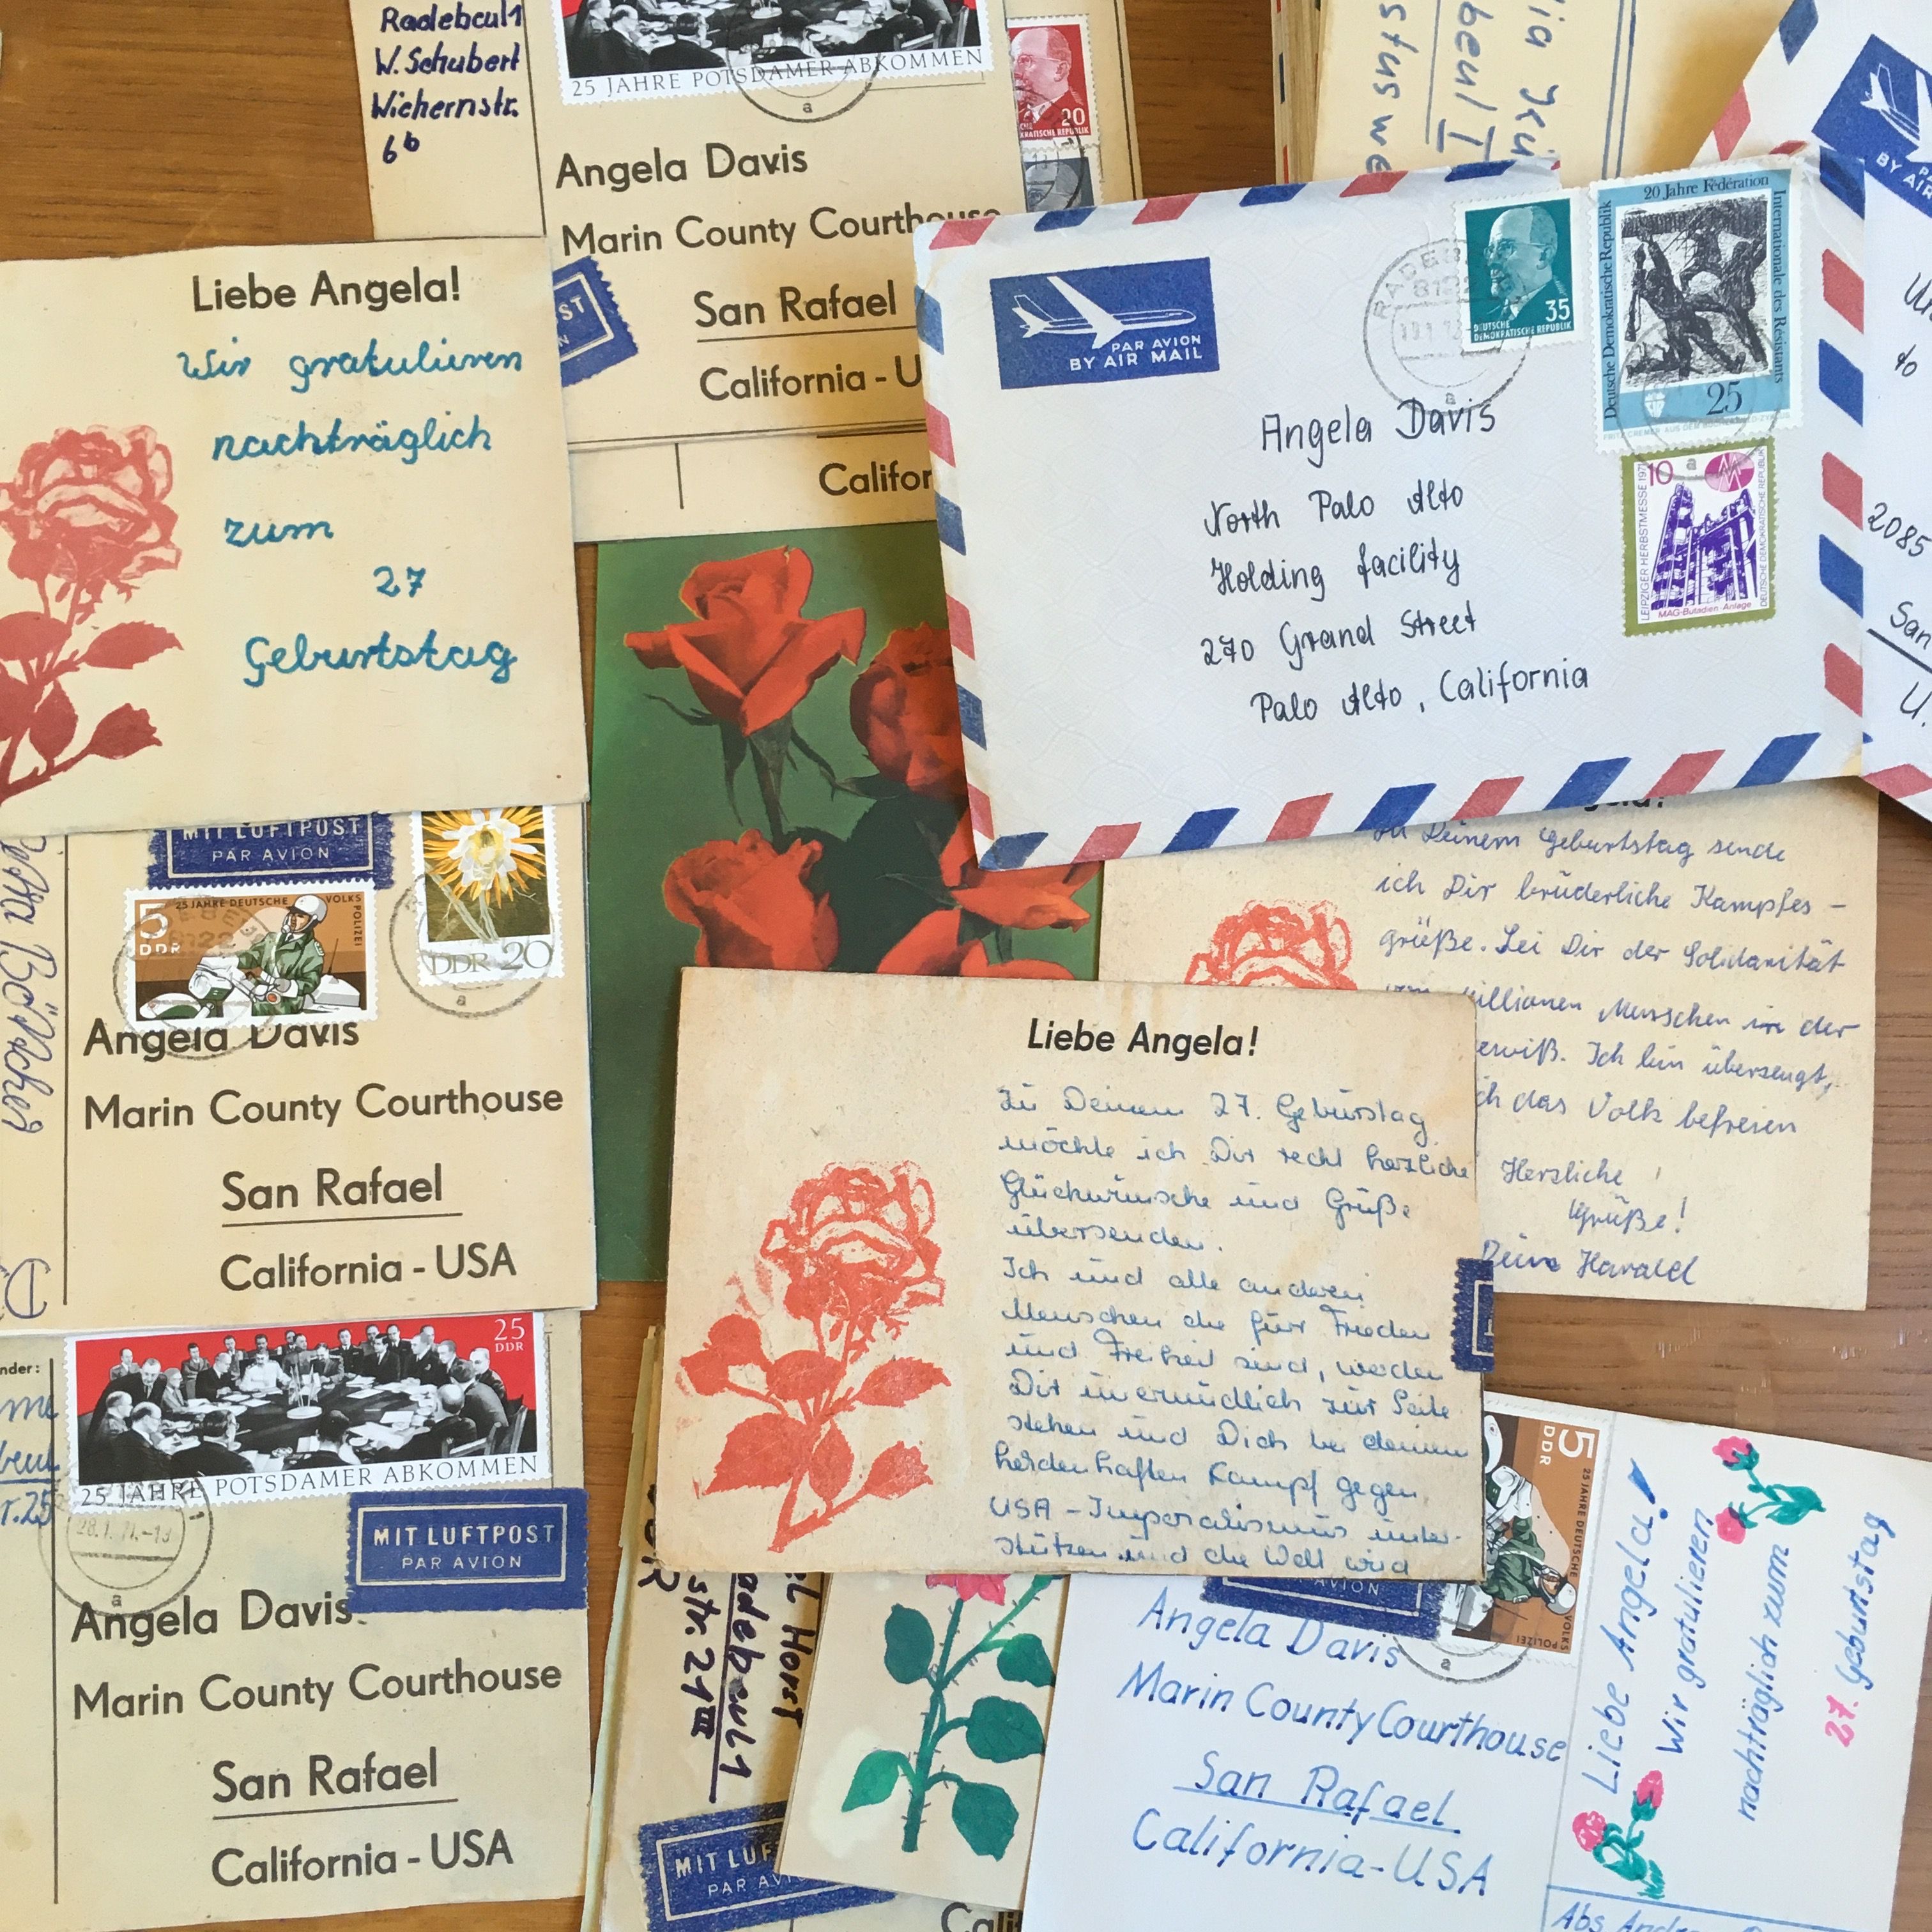 Radebeul 1
W. Schubert
Wichernstr.
6b
25 JAHRE POTSDAMER ABKOMMEN
20
Angela Davis
Marin County Courthouse
San Rafael
California - U
Califor
Liebe Angela!
Wir gratulieren
nachträglich
zum
27
Geburtstag
beul I
PAR AVION
BY AIR MAIL
35
DEUTSCHE
DEMOKRATISCHE REPUBLIK
20 Jahre Fédération
Internationale des Résistants
Deutsche Demokratische Republik
25
10
LEIPZIGER HERBSTMESSE 1971
DEUTSCHE DEMOKRATISCHE REPUBLIK
MAG-Butadien-Anlage
Angela Davis
North Palo Alto
Holding facility
270 Grand Street
Palo Alto, California
BY AIR
to
2085
San
U.
MIT LUFTPOST
PAR AVION
5
DDR
25 JAHRE DEUTSCHE VOLKSPOLIZEI
DDR 20
Angela Davis
Marin County Courthouse
San Rafael
California - USA
Deinem Geburtstag sende
ich Dir brüderliche Kampfes-
grüße. Sei Dir der Solidarität
Millionen Menschen in der
ewiß. Ich bin überzeugt,
ch das Volk befreien
Herzliche
Grüße!
Harald
Liebe Angela!
Zu Deinem 27. Geburstag
möchte ich Dir recht herzliche
Glückwünsche und Grüße
übersenden.
Ich und alle anderen
Menschen die für Frieden
und Freiheit sind, werden
Dir unermüdlich zur Seite
stehen und Dich bei deinem
heldenhaften Kampf gegen
USA-Imperialismus unter-
stützen und die Welt wird
nder:
r. 25
25
DDR
25 JAHRE POTSDAMER ABKOMMEN
28.1.71.-13
MIT LUFTPOST
PAR AVION
Angela Davis
Marin County Courthouse
San Rafael
California - USA
Horst
adebeul 1
str. 21 III
MIT LUF
PAR AVI
Cali
AVION
5
DDR
25 JAHRE DEUTSCHE VOLKSPOLIZEI
Angela Davis
Marin County Courthouse
San Rafael
California-USA
Liebe Angela!
Wir gratulieren
nachträglich zum
27. Geburtstag
Abs.